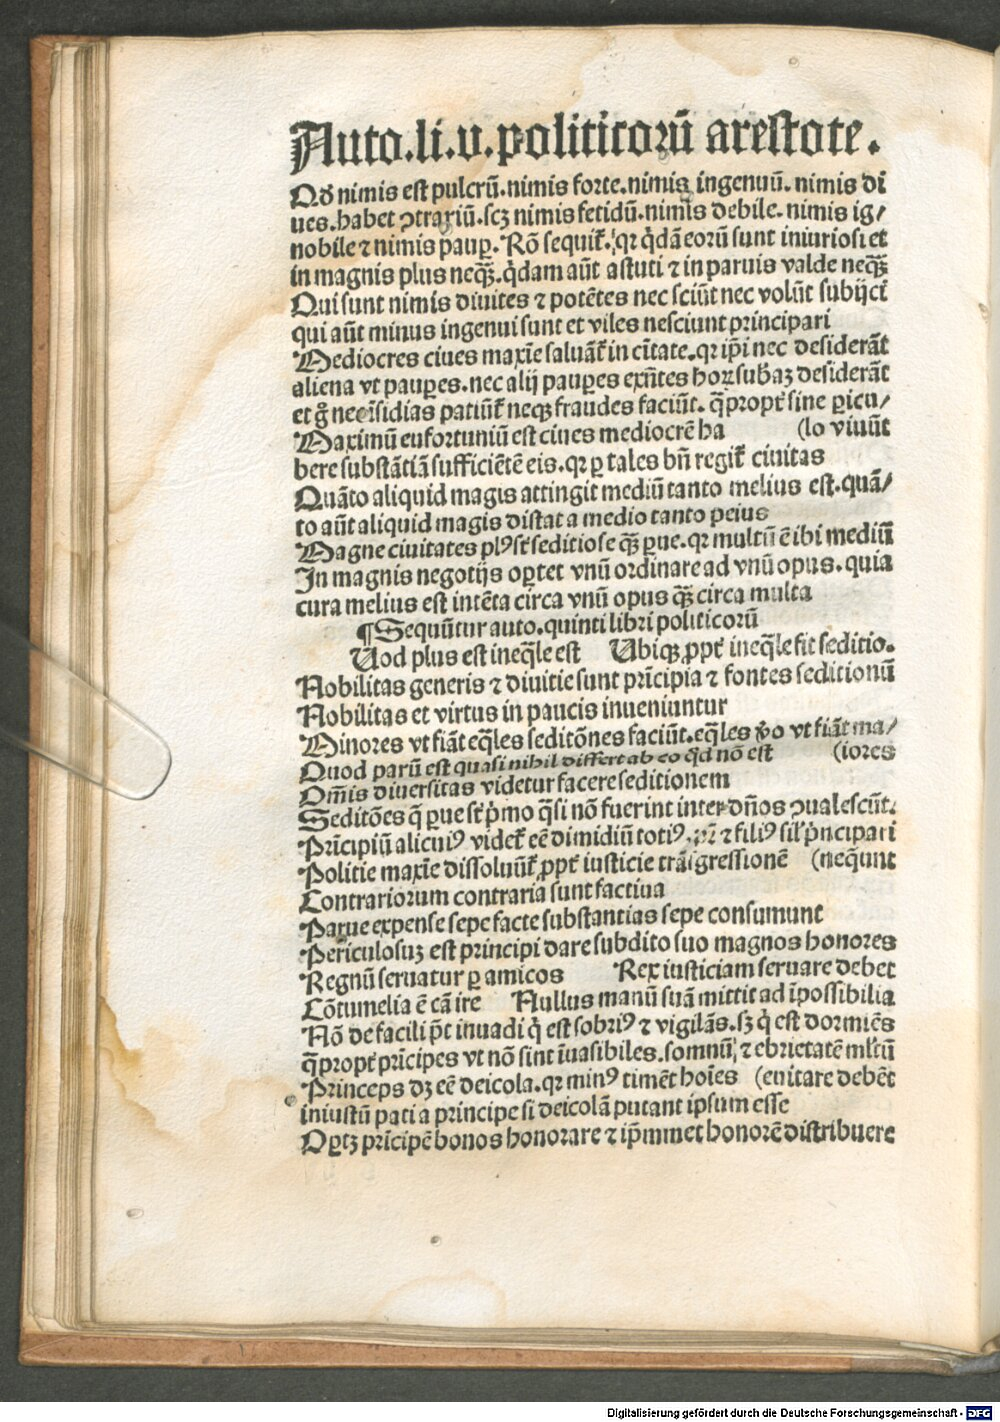 Auto.li.v.politicorū arestote.
Qd nimis est pulcrū.nimis forte.nimis ingenuū.nimis di
ues.habet ꝯtrariū.scꝫ nimis fetidū.nimis debile.nimis ig/
nobile ⁊ nimis paup̲. Rō sequit᷑.qꝛ q̇dā eorū sunt iniuriosi et
in magnis plus neq̄ꝫ.q̇dam aūt astuti ⁊ in paruis valde neq̄ꝫ
Qui sunt nimis diuites ⁊ potētes nec sciūt nec volūt subijci
qui aūt minus ingenui sunt et viles nesciunt principari
Mediocres ciues maxīe saluāt᷑ in cītate.qꝛ ip̄i nec desiderāt
aliena vt paup̲es.nec alij paup̲es exn̄tes hoꝝ subāꝫ desiderāt
et g̊ nec īsidias patiūt᷑ neqꝫ fraudes faciūt.q̄propt̓ sine p̲icu/
Maximū eufortuniū est ciues mediocrē ha (lo viuūt
bere substātiā sufficiētē eis.qꝛ p̲ tales bn̄ regit᷑ ciuitas
Quāto aliquid magis attingit mediū tanto melius est.quā/
to aūt aliquid magis distat a medio tanto peius
Magne ciuitates plꝰ st̄ seditiose q̄ꝫ p̲ue.qꝛ multū ē ibi mediū
In magnis negotijs op̲tet vnū ordinare ad vnū opus.quia
cura melius est intēta circa vnū opus q̄ꝫ circa multa
¶Sequūtur auto.quinti libri politicorū
Uod plus est ineq̄le est Ubiqꝫ ꝓpt̓ ineq̄le fit seditio.
Nobilitas generis ⁊ diuitie sunt prīcipia ⁊ fontes seditionū
Nobilitas et virtus in paucis inueniuntur
Minores vt fiāt eq̄les seditōnes faciūt.eq̄les v̊o vt fiāt ma/
Quod parū est quasi nihil differt ab eo q̇d nō est (iores
Om̄is diuersitas videtur facere seditionem
Seditōes q̄ p̲ue st̄ p̊mo q̄si nō fuerint inter dn̄os ꝯualescūt.
Prīcipiū alicuiꝰ videt᷑ eē dimidiū totiꝰ. pr̄ ⁊ filiꝰ sil̓ p̊ncipari
Politie maxīe dissoluūt᷑ ꝓpt̓ iusticie trāsgressionē (neq̄unt
Contrariorum contraria sunt factiua
Parue expense sepe facte substantias sepe consumunt
Periculosuꝫ est principi dare subdito suo magnos honores
Regnū seruatur p̲ amicos Rex iusticiam seruare debet
Cōtumelia ē cā ire Nullus manū suā mittit ad īpossibilia
Nō de facili p̄t inuadi q̇ est sobriꝰ ⁊ vigilās.sꝫ q̇ est dormiēs
q̄propt̓ prīcipes vt nō sint īuasibiles.somnū ⁊ ebrietatē ml̓tū
Princeps dꝫ eē deicola.qꝛ minꝰ timēt hoīes (euitare debēt
iniustū pati a principe si deicolā putant ipsum esse
Op̲tꝫ prīcipē bonos honorare ⁊ ip̄mmet honorē distribuere
Digitalisierung gefördert durch die Deutsche Forschungsgemeinschaft - DFG